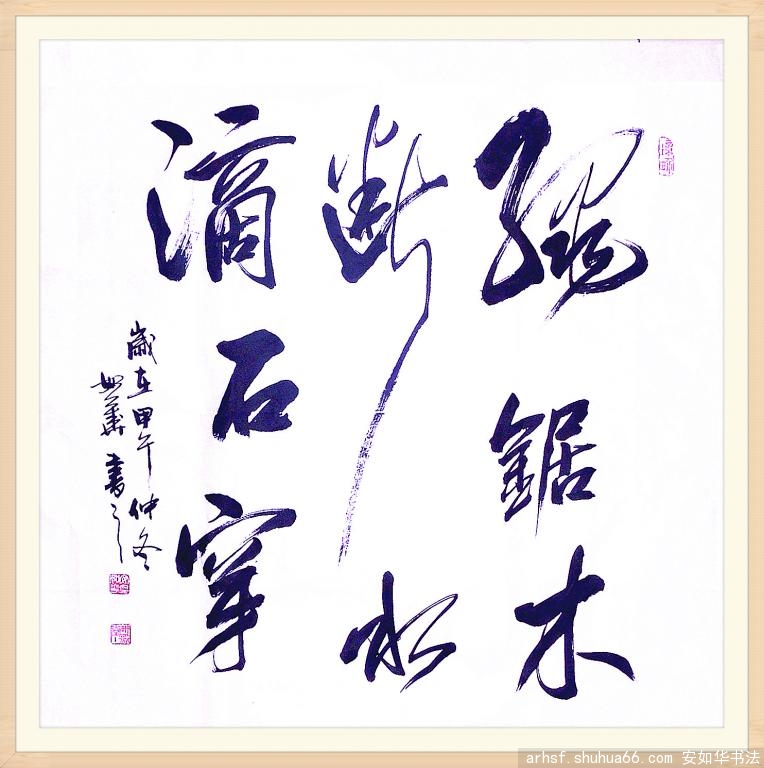 繩鋸木
断水
滴石穿
歲在甲午仲冬
如華書之
arhsf.shuhua66.com 安如华书法